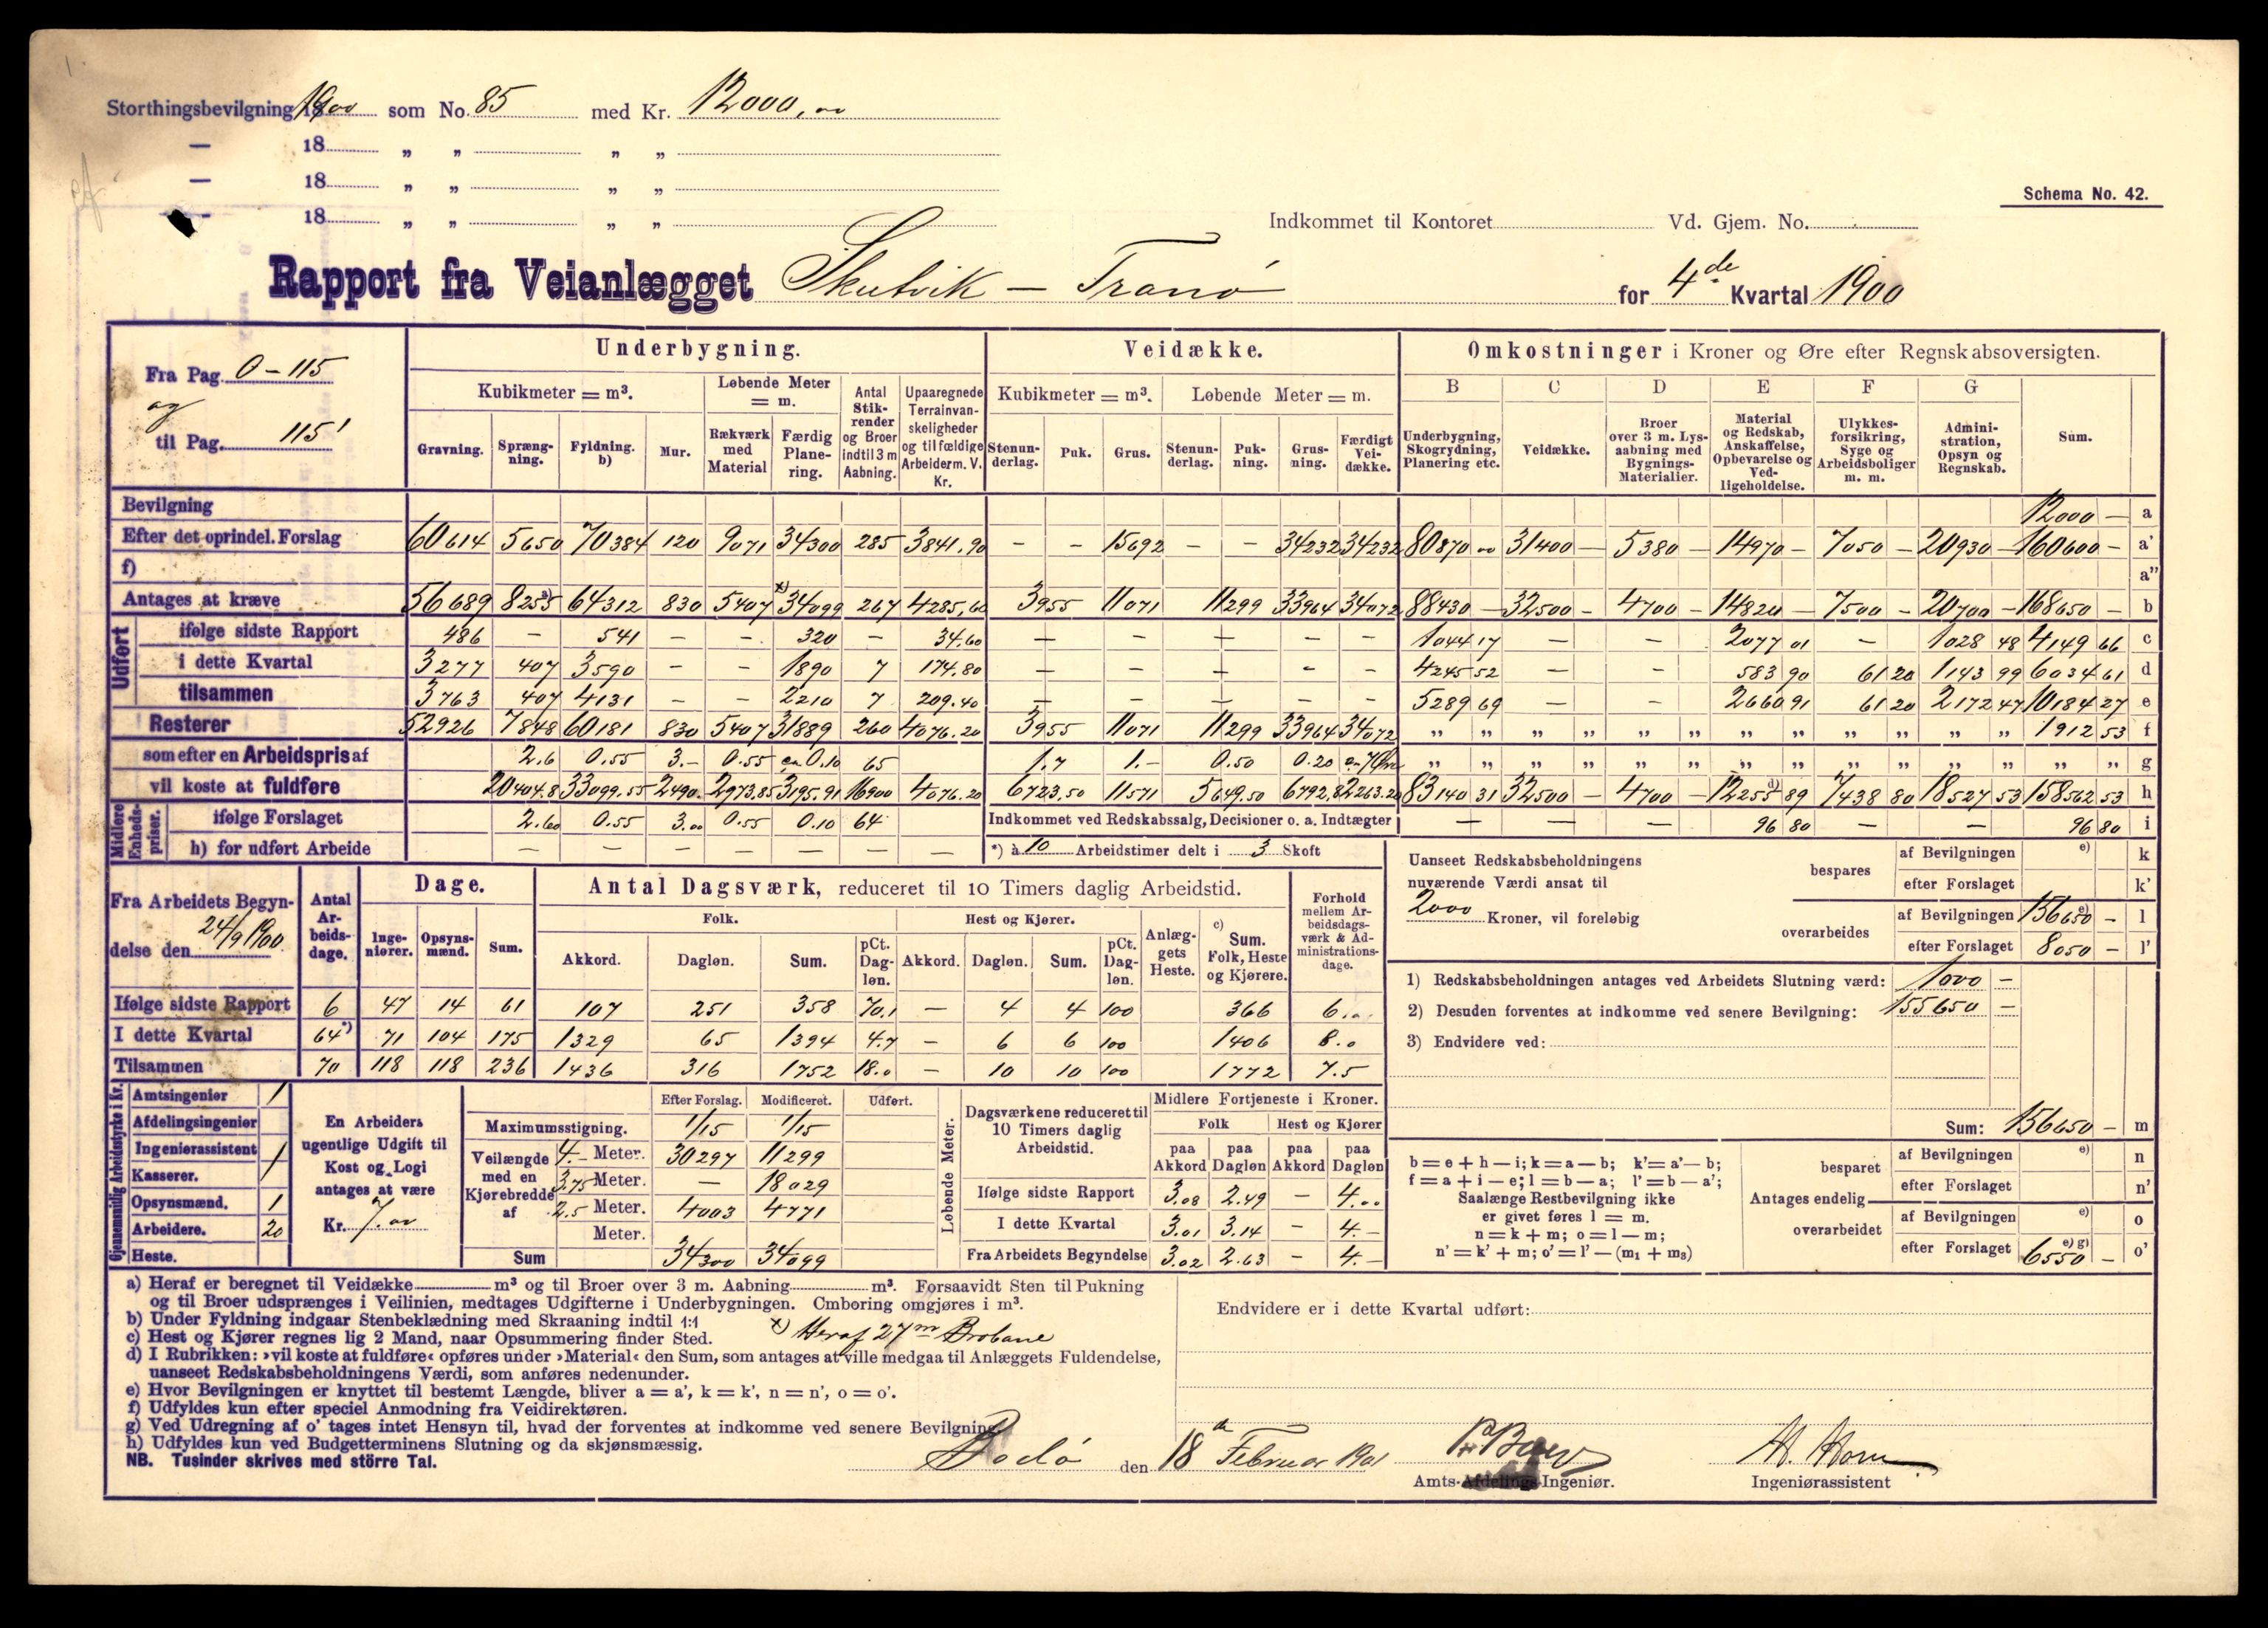 Storthingsbevilgning 1900 som No. 85 med Kr. 12000,00
— 18 „ „ „ „
— 18 „ „ „ „
— 18 „ „ „ „
Schema No. 42.
Indkommet til Kontoret Vd. Gjem. No.
Rapport fra Veianlægget Skutvik — Tranø for 4de Kvartal 1900
Fra Pag. 0 – 115
og
til Pag. 115'
Underbygning. Veidække. Omkostninger i Kroner og Øre efter Regnskabsoversigten.
Kubikmeter = m³. Løbende Meter = m. Antal Stikrender og Broer indtil 3 m Aabning. Upaaregnede Terrainvanskeligheder og tilfældige Arbeiderm. V. Kr. Kubikmeter = m³. Løbende Meter = m. B C D E F G
Gravning. Sprængning. Fyldning. b) Mur. Rækværk med Material Færdig Planering. Stenunderlag. Puk. Grus. Stenunderlag. Pukning. Grusning. Færdigt Veidække. Underbygning, Skogrydning, Planering etc. Veidække. Broer over 3 m. Lysaabning med Bygnings-Materialier. Material og Redskab, Anskaffelse, Opbevarelse og Vedligeholdelse. Ulykkesforsikring, Syge og Arbeidsboliger m. m. Administration, Opsyn og Regnskab. Sum.
Bevilgning 12000 — a
Efter det oprindel. Forslag 60614 5650 70384 120 9071 34300 285 3841.90 – – 15692 – – 34232 34232 80870 00 31400 — 5380 — 14970 — 7050 — 20930 — 160600 — a'
f) a''
Antages at kræve 56689 8255 a) 64312 830 5407 x) 34099 267 4285,60 3955 11071 11299 33964 34072 88430 — 32500 — 4700 — 14820 — 7500 — 20700 — 168650 — b
Udført
ifølge sidste Rapport 486 – 541 – – 320 – 34.60 — – — – – 1044 17 — – 2077 01 – 1028 48 4149 66 c
i dette Kvartal 3277 407 3590 – – 1890 7 174.80 — – — – – 4245 52 — – 583 90 61 20 1143 99 6034 61 d
tilsammen 3763 407 4131 – – 2210 7 209.40 — – — – – 5289 69 — – 2660 91 61 20 2172 47 10184 27 e
Resterer 52926 7848 60181 830 5407 31889 260 4076.20 3955 11071 11299 33964 34072 „ „ „ „ „ „ „ „ „ „ „ „ 1912 53 f
som efter en Arbeidspris af 2.6 0.55 3.– 0.55 ca 0.10 65 1.7 1.– 0.50 0.20 „ „ „ „ „ „ „ „ „ „ „ „ „ „ g
vil koste at fuldføre 20404.8 33099.55 2490.– 2973.85 3195.91 16900 4076.20 6723.50 11571 5649.50 6792.8 2263.20 83140 31 32500 — 4700 — 12255 d) 89 7438 80 18527 53 158562 53 h
Midlere Enhedspriser.
ifølge Forslaget 2.60 0.55 3.00 0.55 0.10 64 Indkommet ved Redskabssalg, Decisioner o. a. Indtægter — — — 96 80 — — 96 80 i
h) for udført Arbeide — — — — — — — — *) à 10 Arbeidstimer delt i 3 Skoft
Uanseet Redskabsbeholdningens nuværende Værdi ansat til 2000 Kroner, vil foreløbig
bespares af Bevilgningen e) k
efter Forslaget k'
overarbeides af Bevilgningen 156650 e) — l
efter Forslaget 8050 — l'
Fra Arbeidets Begyndelse den 24/9 1900
Antal Arbeidsdage. Dage. Antal Dagsværk, reduceret til 10 Timers daglig Arbeidstid. Forhold mellem Arbeidsdagsværk & Administrationsdage.
Folk. Hest og Kjører. Anlæggets Heste. c) Sum. Folk, Heste og Kjørere.
Ingeniører. Opsynsmænd. Sum. Akkord. Dagløn. Sum. pCt. Dagløn. Akkord. Dagløn. Sum. pCt. Dagløn.
Ifølge sidste Rapport 6 47 14 61 107 251 358 70.1 — 4 4 100 366 6.0
I dette Kvartal 64 *) 71 104 175 1329 65 1394 4.7 — 6 6 100 1406 8.0
Tilsammen 70 118 118 236 1436 316 1752 18.0 — 10 10 100 1772 7.5
1) Redskabsbeholdningen antages ved Arbeidets Slutning værd: 1000 —
2) Desuden forventes at indkomme ved senere Bevilgning: 155650 —
3) Endvidere ved:
Sum: 156650 — m
Gjennemsnitlig Arbeidsstyrke i Kr.
Amtsingeniør 1
Afdelingsingeniør
Ingeniørassistent 1
Kasserer.
Opsynsmænd. 1
Arbeidere. 20
Heste.
En Arbeiders ugentlige Udgift til Kost og Logi antages at være
Kr. 7.00
Efter Forslag. Modificeret. Udført.
Maximumsstigning. 1/15 1/15
Veilængde med en Kjørebredde af
4.– Meter. 30297 11299
3.75 Meter. — 18029
2.5 Meter. 4003 4771
Meter.
Sum 34300 34099
Løbende Meter.
Dagsværkene reduceret til 10 Timers daglig Arbeidstid. Midlere Fortjeneste i Kroner.
Folk Hest og Kjører
paa Akkord paa Dagløn paa Akkord paa Dagløn
Ifølge sidste Rapport 3.08 2.49 – 4.00
I dette Kvartal 3.01 3.14 – 4.–
Fra Arbeidets Begyndelse 3.02 2.63 – 4.–
b = e + h — i; k = a — b; k' = a' — b;
f = a + i — e; l = b — a; l' = b — a';
Saalænge Restbevilgning ikke
er givet føres l = m.
n = k + m; o = l — m;
n' = k' + m; o' = l' — (m₁ + m₃)
Antages endelig
besparet af Bevilgningen e) n
efter Forslaget n'
overarbeidet af Bevilgningen e) o
efter Forslaget 6550 e) g) — o'
a) Heraf er beregnet til Veidække m³ og til Broer over 3 m. Aabning m³. Forsaavidt Sten til Pukning
og til Broer udsprænges i Veilinien, medtages Udgifterne i Underbygningen. Omboring omgjøres i m³.
b) Under Fyldning indgaar Stenbeklædning med Skraaning indtil 1:1
c) Hest og Kjører regnes lig 2 Mand, naar Opsummering finder Sted.
x) Heraf 27 m Brobane
d) I Rubrikken: »vil koste at fuldføre« opføres under »Material« den Sum, som antages at ville medgaa til Anlæggets Fuldendelse,
uanseet Redskabsbeholdningens Værdi, som anføres nedenunder.
e) Hvor Bevilgningen er knyttet til bestemt Længde, bliver a = a', k = k', n = n', o = o'.
f) Udfyldes kun efter speciel Anmodning fra Veidirektøren.
g) Ved Udregning af o' tages intet Hensyn til, hvad der forventes at indkomme ved senere Bevilgning.
h) Udfyldes kun ved Budgetterminens Slutning og da skjønsmæssig.
NB. Tusinder skrives med større Tal.
Endvidere er i dette Kvartal udført:
Bodø den 18de Februar 1901
Amts-Afdelings-Ingeniør.
H. Horn
Ingeniørassistent